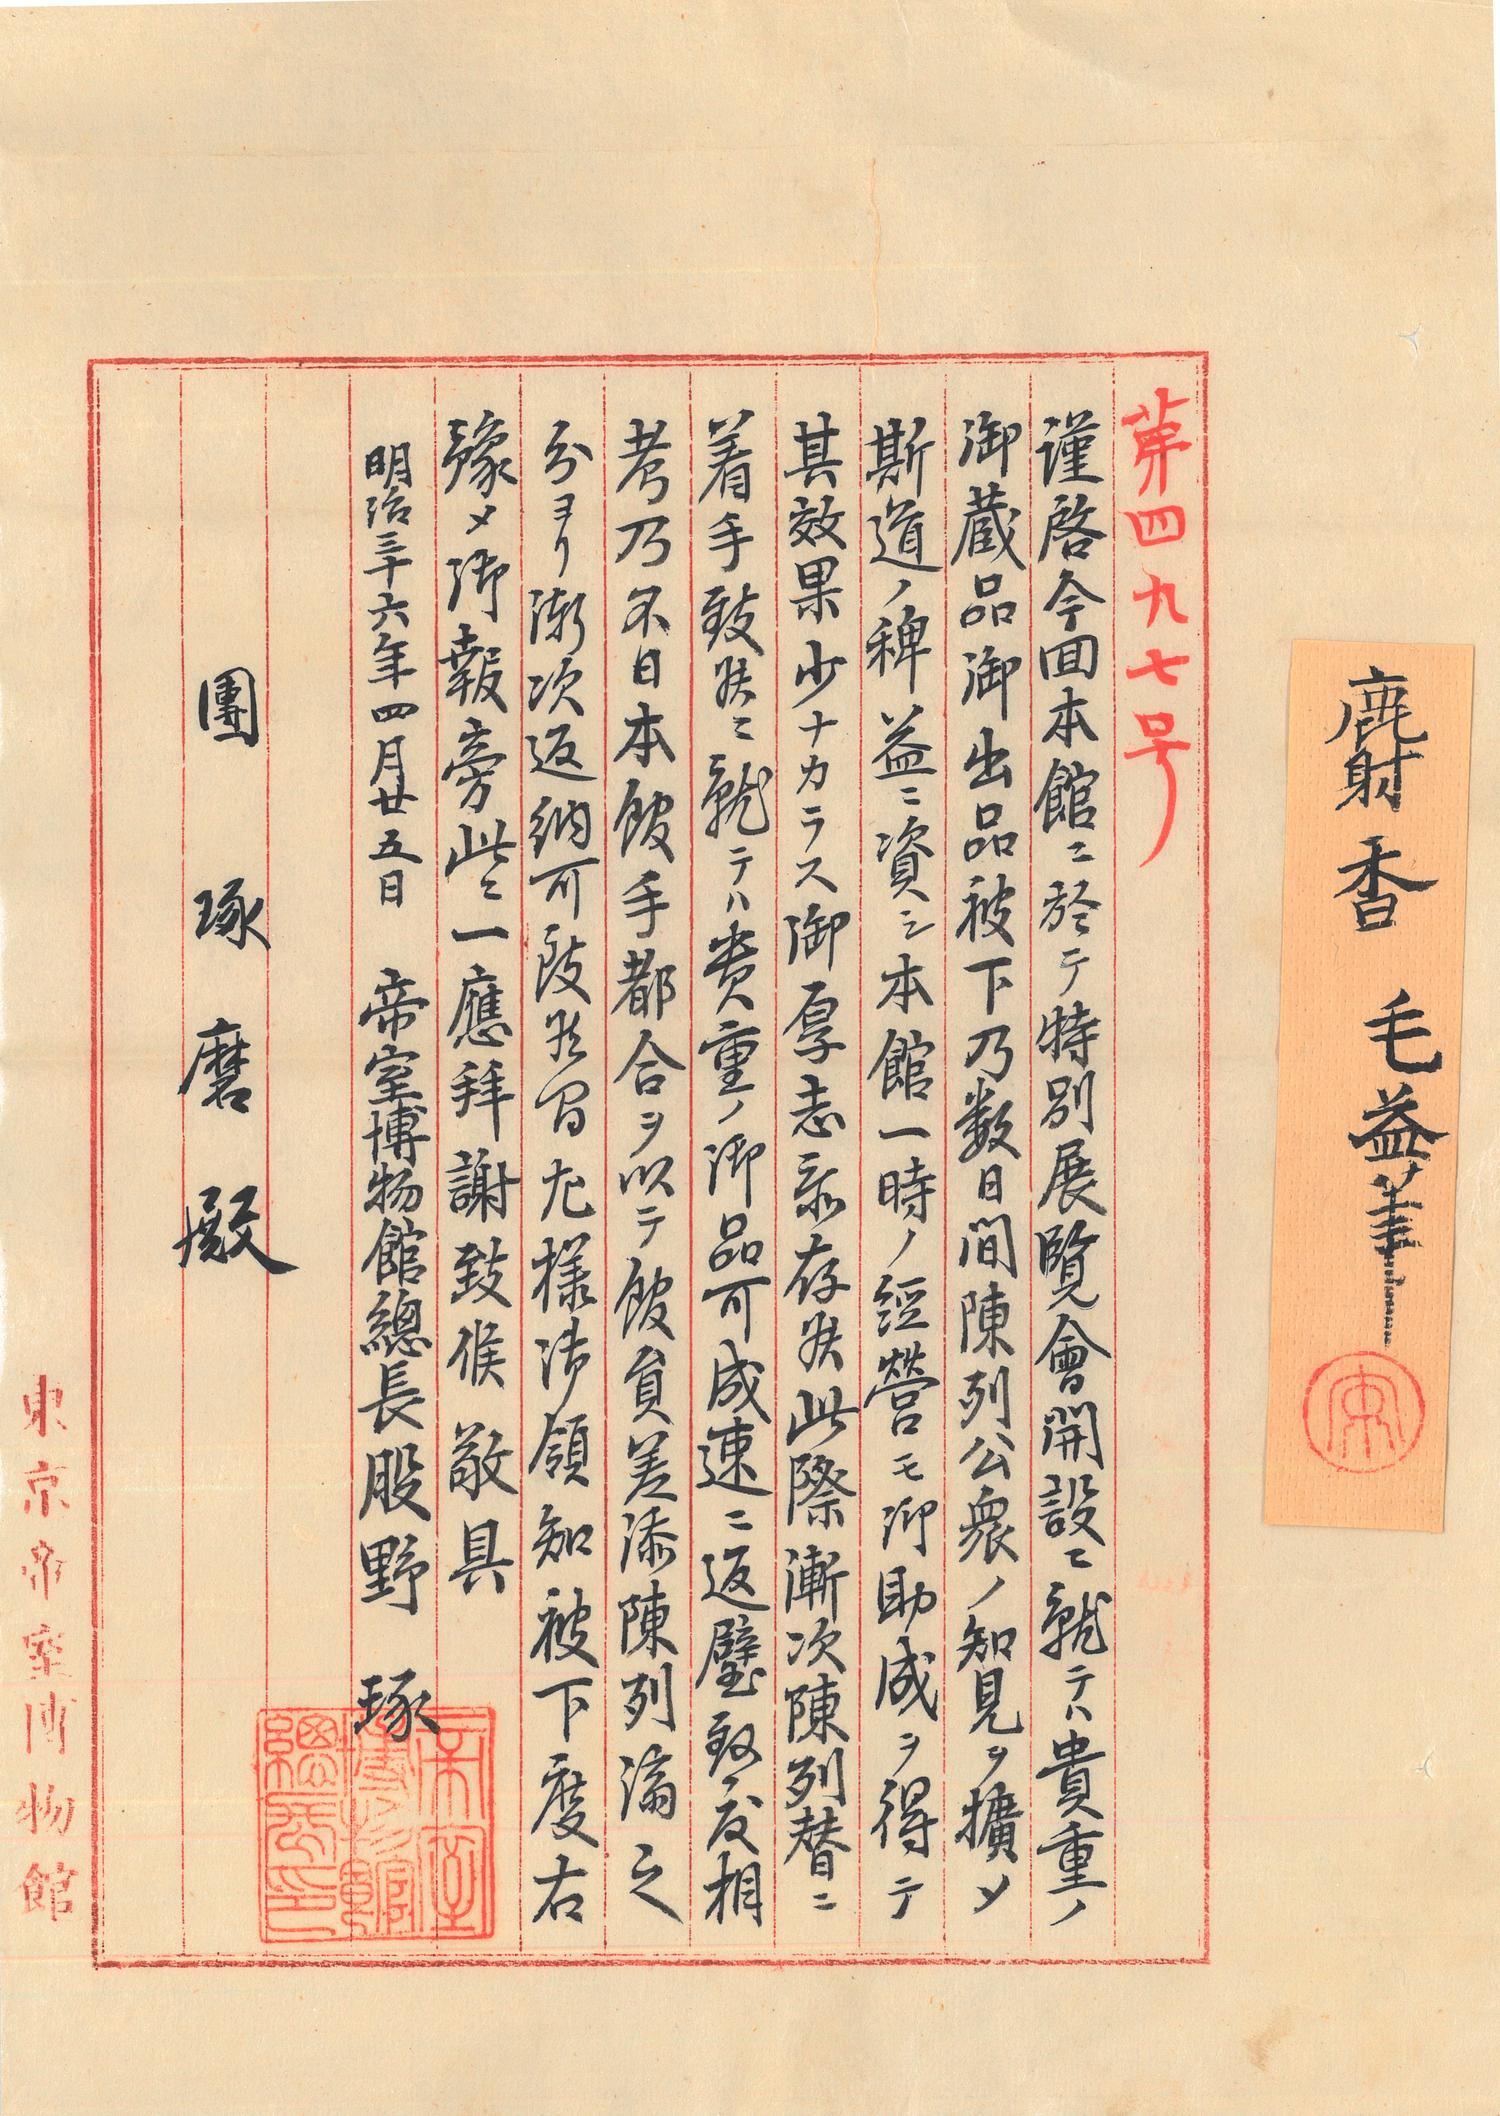 麝香 毛益筆
第四九七号
謹啓今回本館ニ於テ特別展覧會開設ニ就テハ貴重ノ
御蔵品御出品被下乃数日間陳列公衆ノ知見ヲ擴メ
斯道ノ稗益ニ資シ本館一時ノ經營モ御助成ヲ得テ
其效果少ナカラス御厚志忝存候此際漸次陳列替ニ
着手致候ニ就テハ貴重ノ御品可成速ニ返璧致度相
考乃不日本館手都合ヲ以テ館員差添陳列済之
分ヨリ漸次返納可致候間左様御領知被下度右
豫メ御報旁此ニ一應拜謝致候敬具
明治三十六年四月廿五日 帝室博物館總長股野 琢
團 琢磨殿
帝室博物館總長印
東京帝室博物館